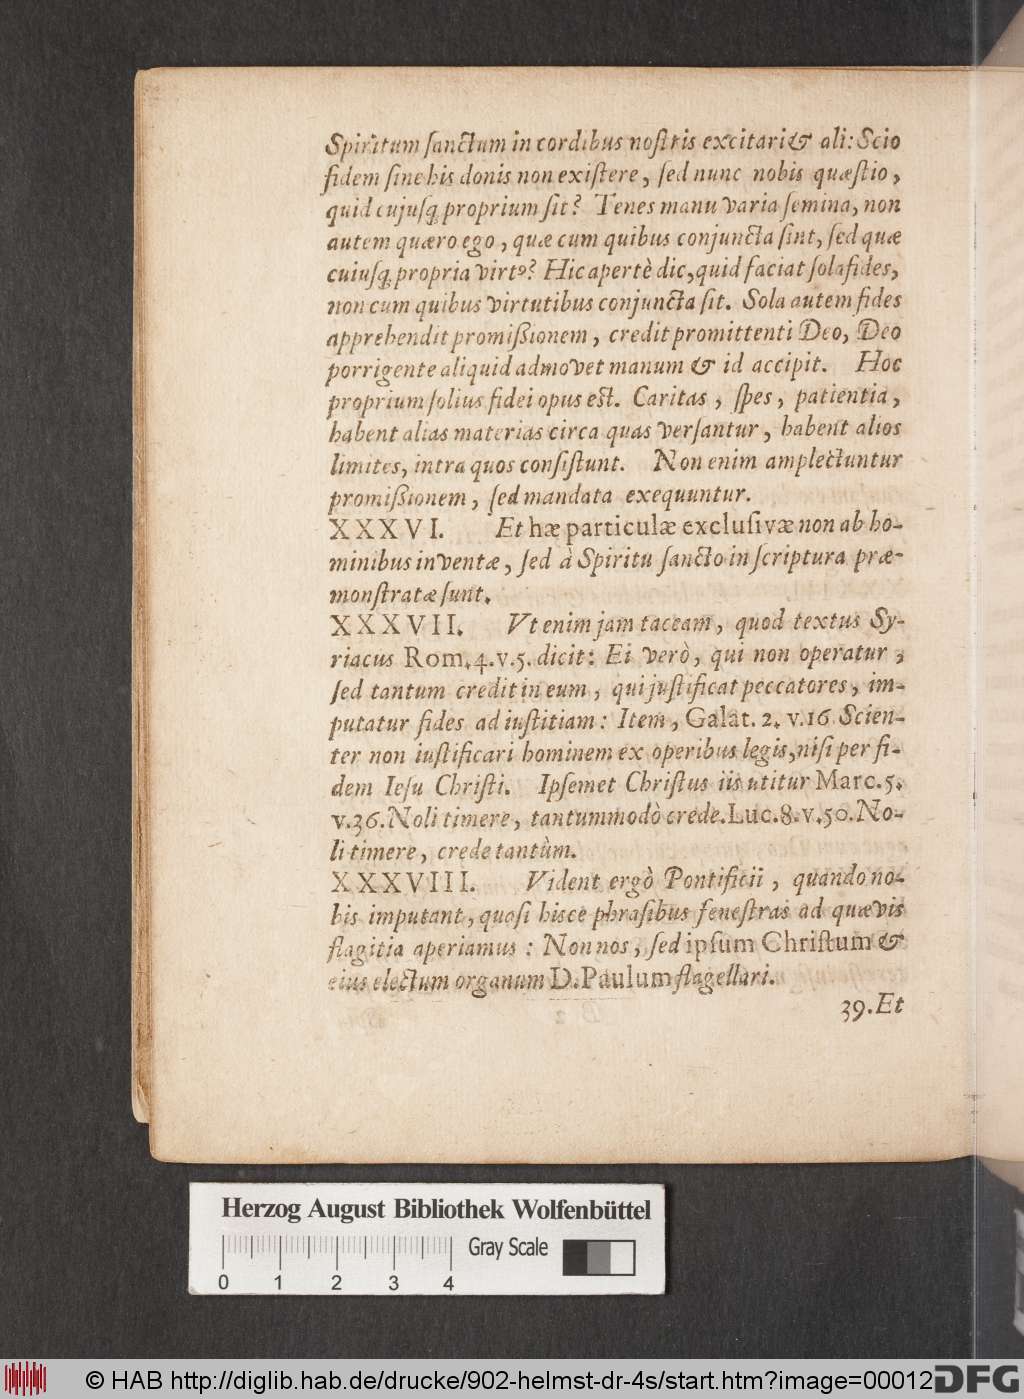 Spiritum ſanctum in cordibus noſtris excitari & ali: Scio
fidem ſine his donis non exiſtere, ſed nunc nobis quæſtio,
quid cujuſq; proprium ſit? Tenes manu varia ſemina, non
autem quæro ego, quæ cum quibus conjuncta ſint, ſed quæ
cuiuſq; propria virtꝰ? Hic apertè dic, quid faciat ſola fides,
non cum quibus virtutibus conjuncta ſit. Sola autem fides
apprehendit promiſſionem, credit promittenti Deo, Deo
porrigente aliquid admovet manum & id accipit. Hoc
proprium ſolius fidei opus eſt. Caritas, ſpes, patientia,
habent alias materias circa quas verſantur, habent alios
limites, intra quos conſiſtunt. Non enim amplectuntur
promiſſionem, ſed mandata exequuntur.
XXXVI. Et hæ particulæ excluſivæ non ab ho-
minibus inventæ, ſed à Spiritu ſancto in ſcriptura præ-
monſtratæ ſunt.
XXXVII. Vt enim jam taceam, quod textus Sy-
riacus Rom. 4. v. 5. dicit: Ei verò, qui non operatur,
ſed tantum credit in eum, qui juſtificat peccatores, im-
putatur fides ad iuſtitiam: Item, Galat. 2. v. 16 Scien-
ter non iuſtificari hominem ex operibus legis, niſi per fi-
dem Ieſu Chriſti. Ipſemet Chriſtus iis utitur Marc. 5.
v. 36. Noli timere, tantummodò crede. Luc. 8. v. 50. No-
li timere, crede tantùm.
XXXVIII. Vident ergò Pontificii, quando no-
bis imputant, quaſi hisce phraſibus feneſtras ad quævis
flagitia aperiamus: Non nos, ſed ipſum Chriſtum &
eius electum organum D. Paulum flagellari.
39. Et
Herzog August Bibliothek Wolfenbüttel
Gray Scale
0 1 2 3 4
© HAB http://diglib.hab.de/drucke/902-helmst-dr-4s/start.htm?image=00012
DFG